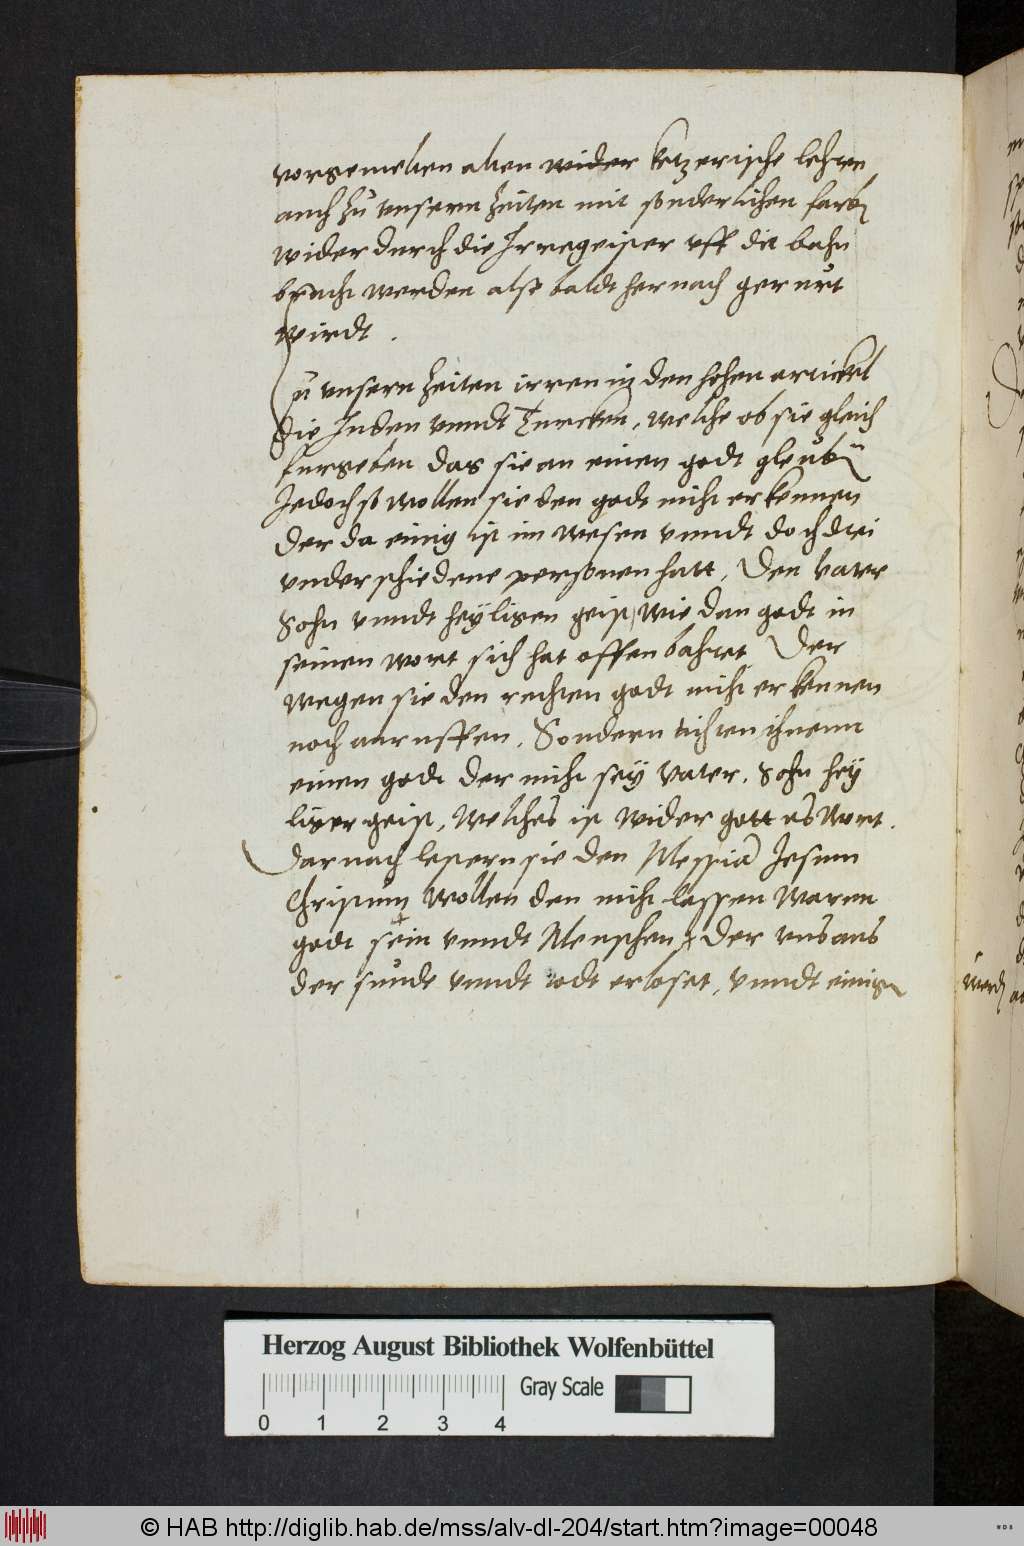 vorgemelten alten wider ketzerische lehren
auch zu unsern zeiten mit sonderlichen farb
wider durch die Irregeister uff die bahn
bracht werden alß baldt hernach gerurt
wirdt .
Zu unsern zeiten irren in den hohen artickel
die Juden unndt Turcken, welche ob sie gleich
furgeben das sie an einen godt gleuben
Jedoch so wollen sie den godt nicht erkennen
der da einig ist im wesen unndt doch drei
underschiedene personen hatt, Den vater
Sohn unndt heyligen geist, wie dan godt in
seinen wort sich hat offenbahret, Der
wegen sie den rechten godt nicht erkennen
noch anruffen, Sondern tichten ihnenn
einen godt der nicht sey vater, Sohn hey
liger geist, Welches ist wider gottes Wort.
Darnach lestern sie den Messia Jesum
Christum Wollen den nicht lassen Waren
godt sein unndt Menschen, der uns aus
der sunde unndt todt erloset, unndt einig
werd
Herzog August Bibliothek Wolfenbüttel
Gray Scale
0 1 2 3 4
© HAB http://diglib.hab.de/mss/alv-dl-204/start.htm?image=00048